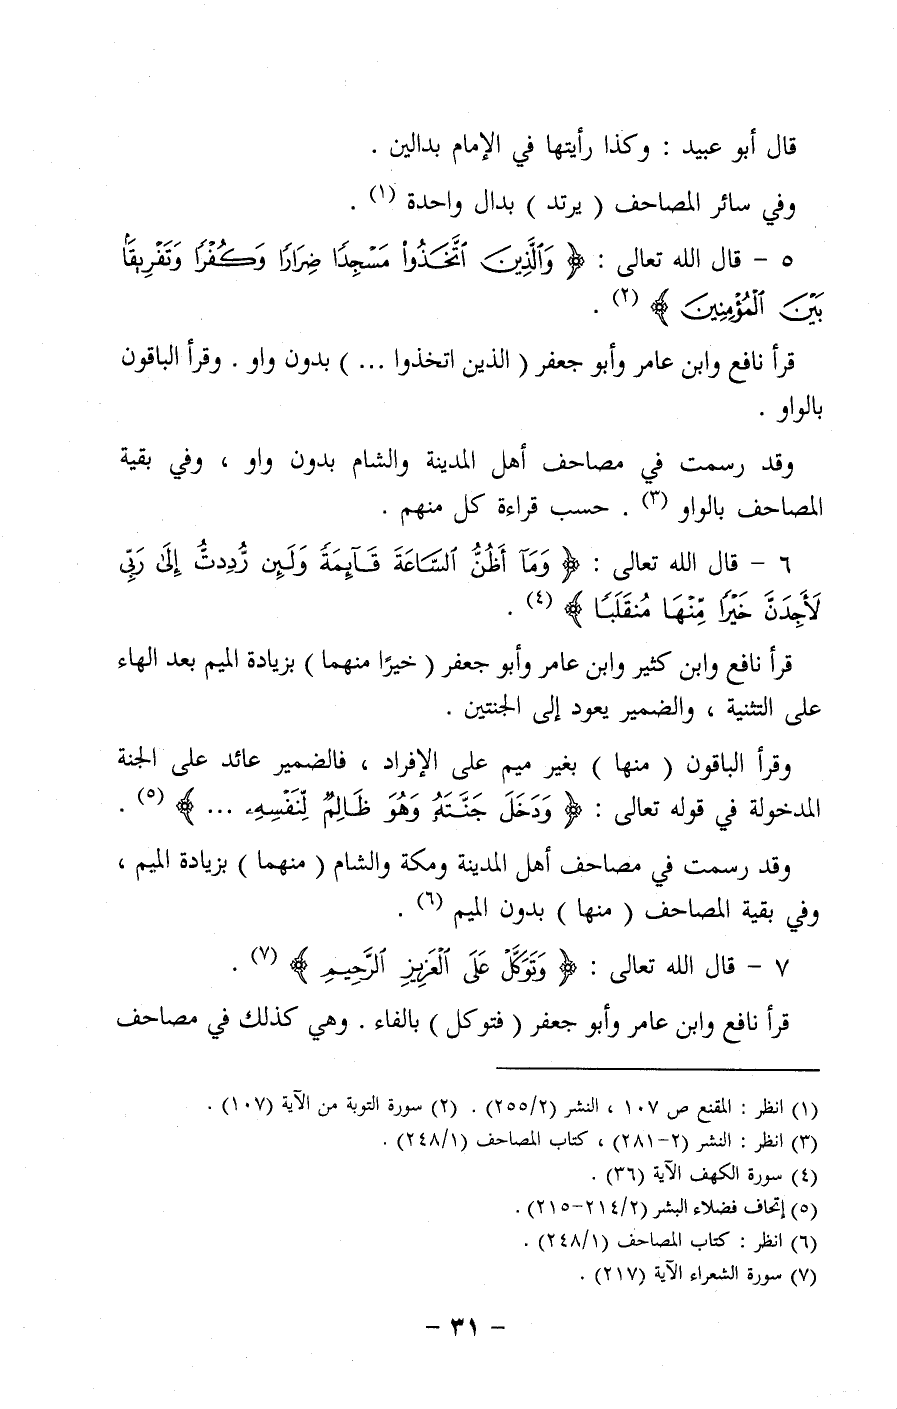 قال أبو عبيد : وكذا رأيتها في الإمام بدالين .
وفي سائر المصاحف ( يرتد ) بدال واحدة (١) .
٥ - قال الله تعالى : ﴿ وَٱلَّذِينَ ٱتَّخَذُواْ مَسْجِدًا ضِرَارًا وَكُفْرًا وَتَفْرِيقًا
بَيْنَ ٱلْمُؤْمِنِينَ ﴾ (٢) .
قرأ نافع وابن عامر وأبو جعفر ( الذين اتخذوا ... ) بدون واو . وقرأ الباقون
بالواو .
وقد رسمت في مصاحف أهل المدينة والشام بدون واو ، وفي بقية
المصاحف بالواو (٣) . حسب قراءة كل منهم .
٦ - قال الله تعالى : ﴿ وَمَآ أَظُنُّ ٱلسَّاعَةَ قَآئِمَةً وَلَئِن رُّدِدتُّ إِلَىٰ رَبِّى
لَأَجِدَنَّ خَيْرًا مِّنْهَا مُنقَلَبًا ﴾ (٤) .
قرأ نافع وابن كثير وابن عامر وأبو جعفر ( خيرًا منهما ) بزيادة الميم بعد الهاء
على التثنية ، والضمير يعود إلى الجنتين .
وقرأ الباقون ( منها ) بغير ميم على الإفراد ، فالضمير عائد على الجنة
المدخولة في قوله تعالى : ﴿ وَدَخَلَ جَنَّتَهُۥ وَهُوَ ظَالِمٌ لِّنَفْسِهِۦ ... ﴾ (٥) .
وقد رسمت في مصاحف أهل المدينة ومكة والشام ( منهما ) بزيادة الميم ،
وفي بقية المصاحف ( منها ) بدون الميم (٦) .
٧ - قال الله تعالى : ﴿ وَتَوَكَّلْ عَلَى ٱلْعَزِيزِ ٱلرَّحِيمِ ﴾ (٧) .
قرأ نافع وابن عامر وأبو جعفر ( فتوكل ) بالفاء . وهي كذلك في مصاحف
(١) انظر : المقنع ص ١٠٧ ، النشر (٢/٢٥٥) . (٢) سورة التوبة من الآية (١٠٧) .
(٣) انظر : النشر (٢-٢٨١) ، كتاب المصاحف (٢٤٨/١) .
(٤) سورة الكهف الآية (٣٦) .
(٥) إتحاف فضلاء البشر (٢/٢١٤-٢١٥) .
(٦) انظر : كتاب المصاحف (٢٤٨/١) .
(٧) سورة الشعراء الآية (٢١٧) .
- ٣١ -